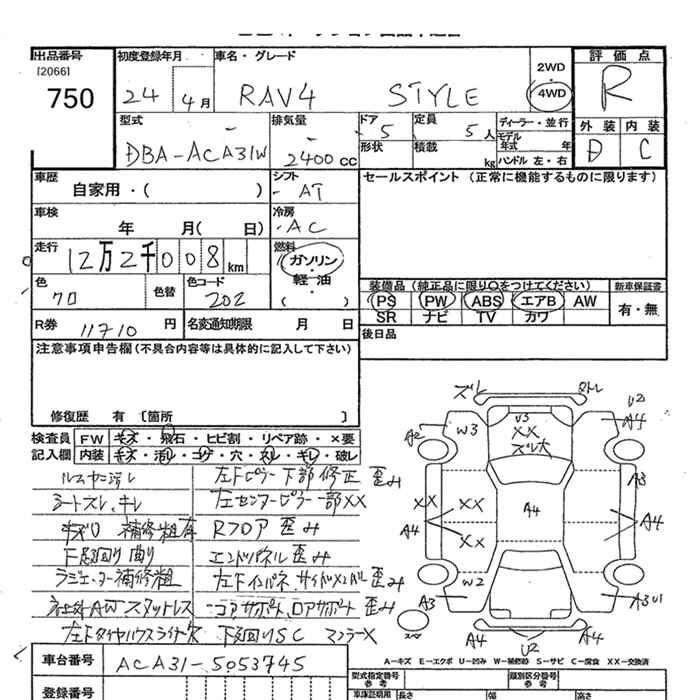 出品番号 初度登録年月 車名・グレード 2WD 評価点
[2066] 750 24 4月 RAV4 STYLE 4WD R
型式 排気量 ドア 5 定員 5人 ディーラー・並行 外装 内装
DBA-ACA31W 2400cc 形状 積載 kg モデル年式 年 ハンドル 左・右 D C
車歴 自家用・( ) シフト AT セールスポイント (正常に機能するものに限ります)
車検 年 月( 日) 冷房 AC
走行 12万2千008km 燃料 ガソリン・軽油・( )
色 クロ 色替 色コード 202 装備品 (純正品に限り○をつけてください) 新車保証書
PS PW ABS エアB AW 有・無
SR ナビ TV カワ
R券 11710円 名変通知期限 月 日 後日品
注意事項申告欄 (不具合内容等は具体的に記入して下さい)
修復歴 有 [箇所 ]
検査員 FW キズ・飛石・ヒビ割・リペア跡・×要
記入欄 内装 キズ・汚レ・コゲ・穴・スレ・キレ・破レ
ルームヤニ汚レ 左Fピラー下部修正 歪み
シートスレ、キレ 左センターピラー一部XX
キズU 補修粗 Rフロア 歪み
下廻り曲り エンドパネル 歪み
ラジエーター補修粗
社外AWスタッドレス コアサポート 歪み
左F 下廻りSC マフラーX
ズレ
A2 W3 V3 XX ズレ大 U2 A4
XX XX A4 A3
A4 XX A4
A3 W2 A3U1
A4 U2 A4
A-キズ E-エクボ U-凹み W-補修跡 S-サビ C-腐食 XX-交換済
車台番号 ACA31-5053745
登録番号 型式指定番号 参考 類別区分番号 参考
車庫証明用 長さ 幅 高さ